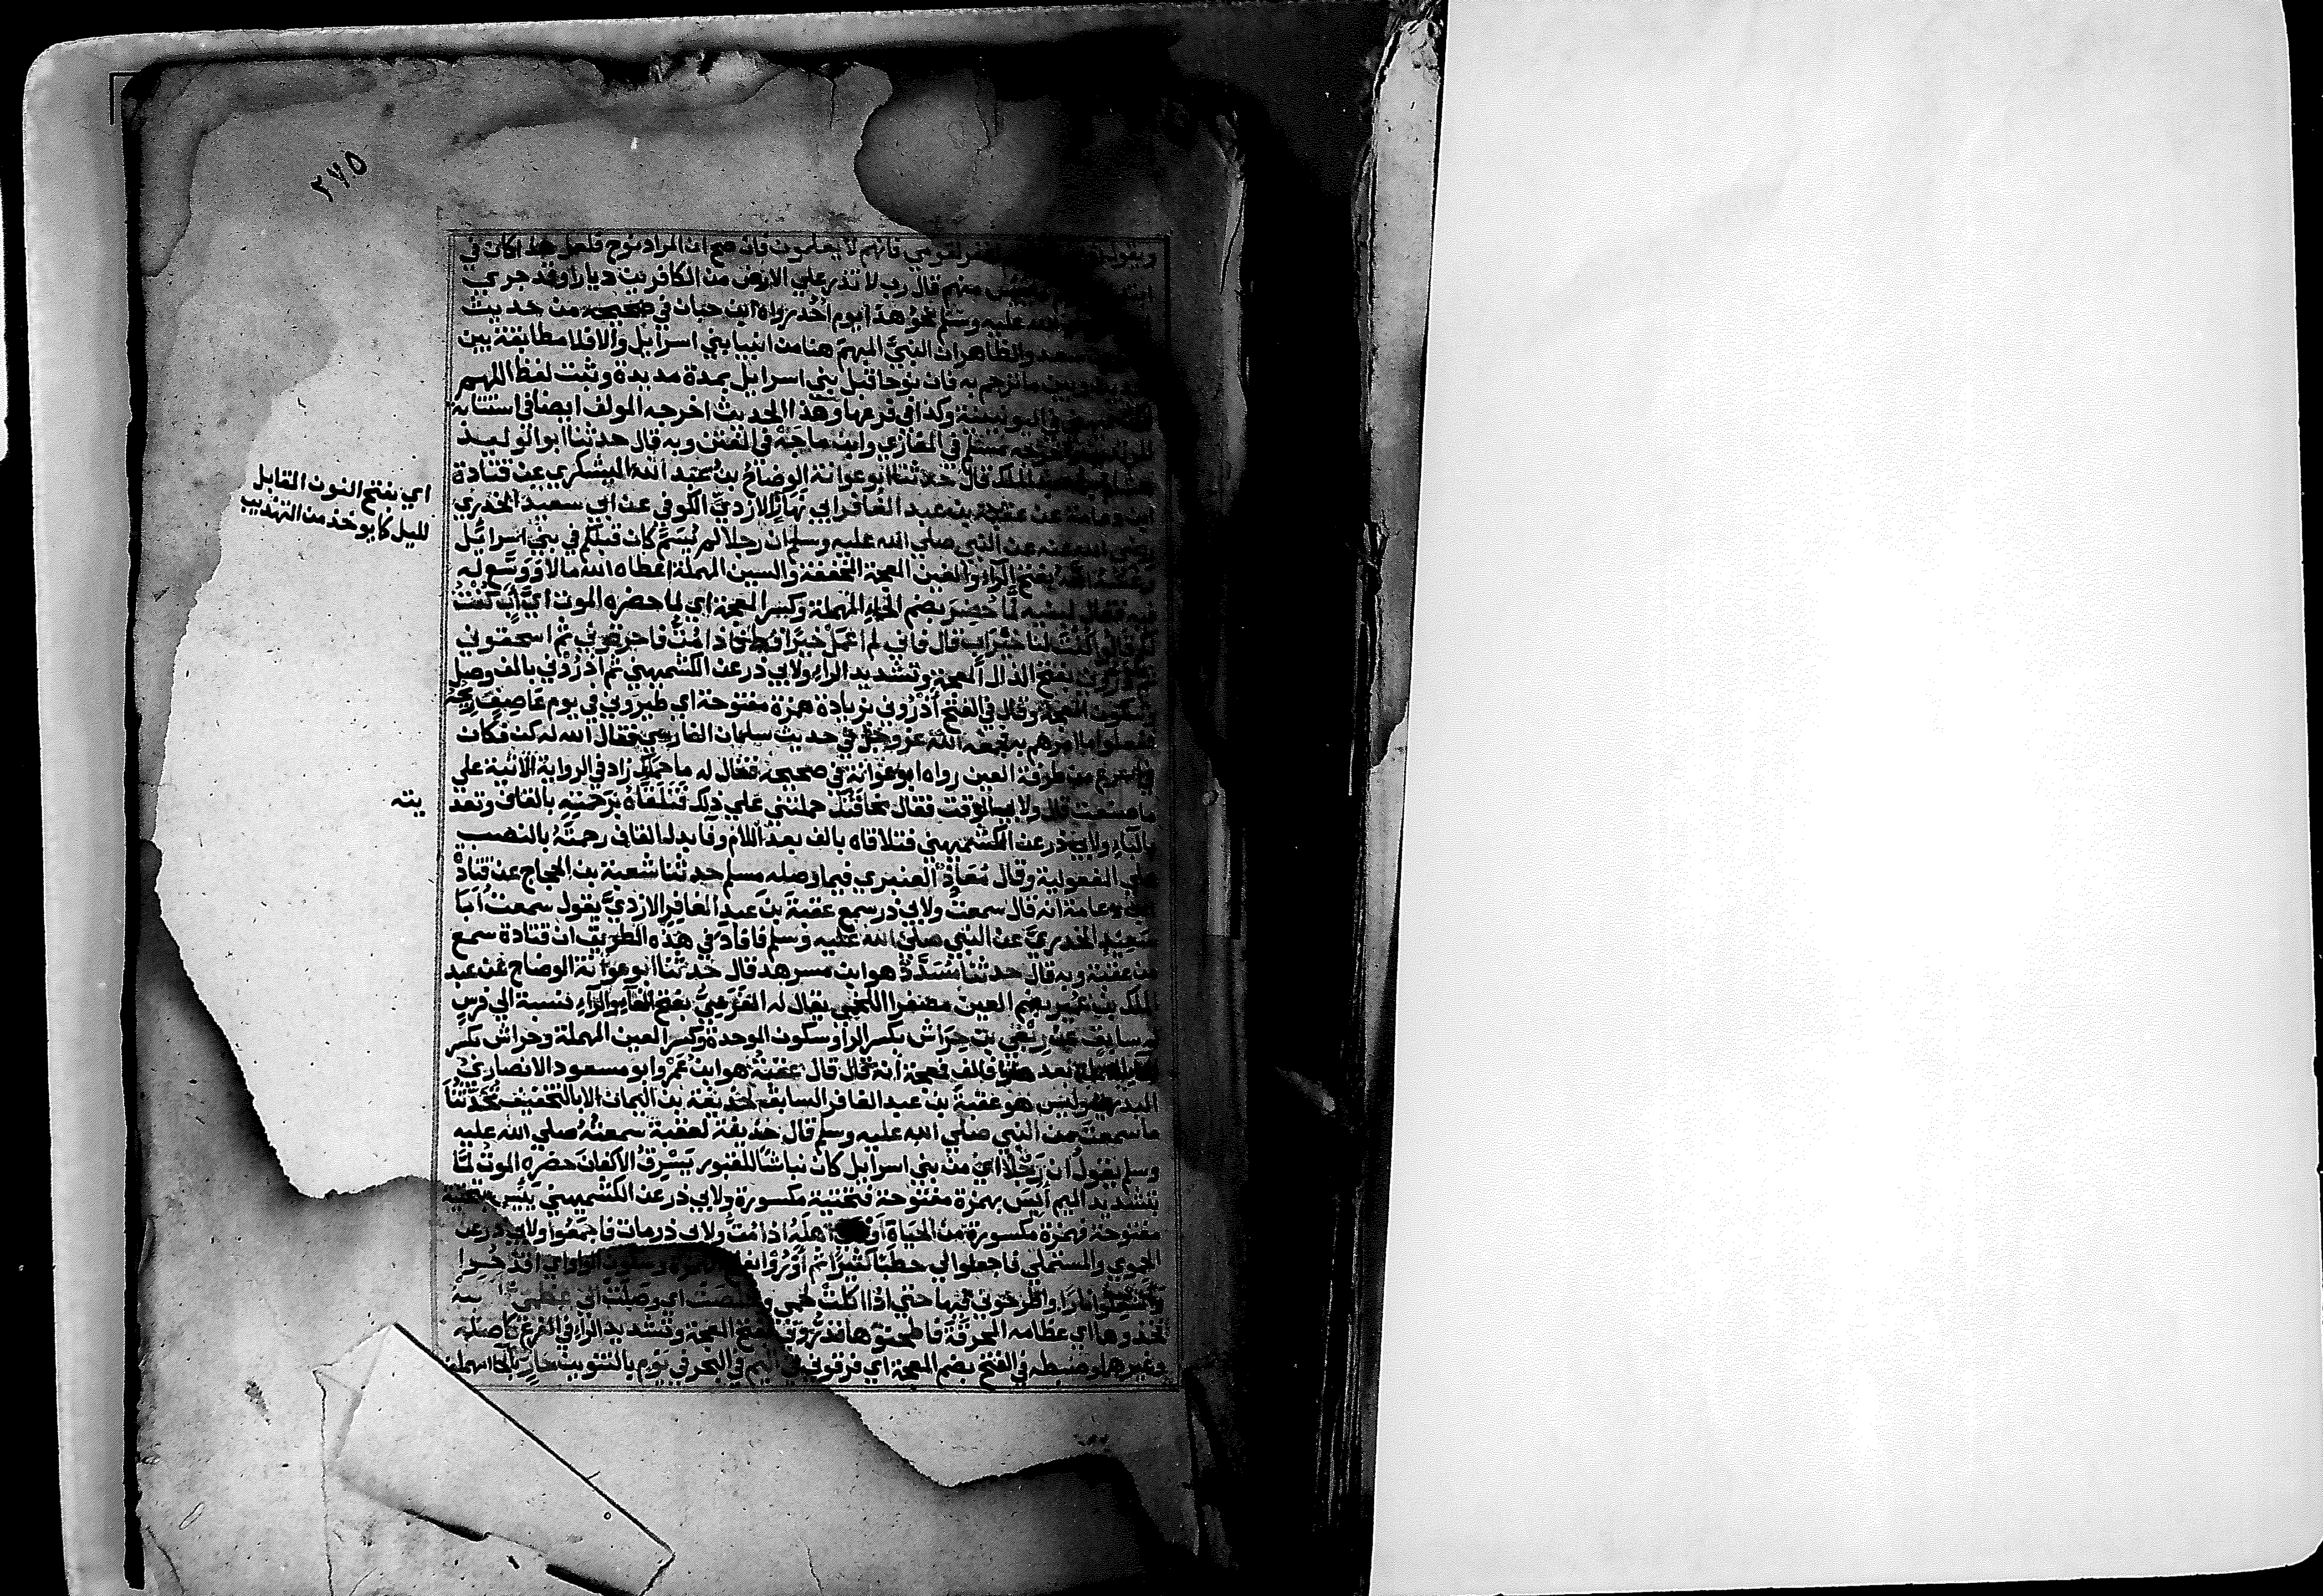 ٢٧٥
ويقول اغفر لقومي فانهم لا يعلمون فان صح ان المراد نوح فلعل هذا كان في
منهم قال رب لا تذر علي الارض من الكافرين ديارا وقد جري
الله عليه وسلم نحو هذا يوم احد رواه ابن حبان في صحيحه من حديث
سعد والظاهر ان النبي المبهم هنا من انبيا بني اسرايل والا فلا مطابقة بين
وبين ما ترجم به فان نوحا قبل بني اسرايل بمدة مديدة وثبت لفظ اللهم
في اليونينية وكذا في فرعها وهذا الحديث اخرجه المولف ايضا في استتابة
مسلم في المغازي وابن ماجة في الفتن وبه قال حدثنا ابو الوليد
عبد الملك قال حدثنا ابو عوانة الوضاح بن عبد الله اليشكري عن قتادة
ابن دعامة عن عقبة بن عبد الغافر ابي نهار الازدي الكوفي عن ابي سعيد الخدري
رضي الله عنه عن النبي صلي الله عليه وسلم ان رجلا لم يسم كان قبلكم في بني اسرائيل
رغسه الله بفتح الراء والغين المعجمة المخففة والسين المهملة اعطاه الله مالا ووسع له
فيه فقال لبنيه لما حضر بضم الحاء المهملة وكسر المعجمة اي لما حضره الموت اي اب كنت
لكم قالوا كنت لنا خير اب قال فاني لم اعمل خيرا قط فاذا مت فاحرقوني ثم اسحقوني
ثم ذروني بفتح الذال المعجمة وتشديد الراء ولابي ذر عن الكشميهني ثم اذروني بالف وصل
وسكون المعجمة وقال في الفتح اذروني بزيادة همزة مفتوحة اي طيروني في يوم عاصف ريحه
ففعلوا ما امرهم به فجمعه الله عز وجل في حديث سلمان الفارسي فقال الله له كن فكان
في اسرع من طرفة العين رواه ابو عوانة في صحيحه فقال له ما حملك زاد في الرواية الاتية علي
ما صنعت قال ولابي الوقت فقال مخافتك حملتني علي ذلك فتلقاه برحمته بالقاف وتعد
يته
بالباء ولابي ذر عن الكشميهني فتلافاه بالف بعد اللام وفا بدل القاف رحمته بالنصب
علي المفعولية وقال معاذ العنبري فيما وصله مسلم حدثنا شعبة بن الحجاج عن قتادة
ابن دعامة انه قال سمعت ولابي ذر سمع عقبة بن عبد الغافر الازدي يقول سمعت ابا
سعيد الخدري عن النبي صلي الله عليه وسلم فافاد في هذه الطريق ان قتادة سمع
من عقبة وبه قال حدثنا مسدد هو ابن مسرهد قال حدثنا ابو عوانة الوضاح عن عبد
الملك بن عمير بضم العين مصغرا اللخمي يقال له الفرسي بفتح الفاء والراء نسبة الي فرس
له سابق عن ربعي بن حراش بكسر الرا وسكون الموحدة وكسر العين المهملة وحراش بكسر
بعد فالف فمعجمة انه قال قال عقبة هو ابن عمرو ابو مسعود الانصاري
البدري وليس هو عقبة بن عبد الغافر السابق لحذيفة بن اليمان الا بالتخفيف تحدثنا
ما سمعت من النبي صلي الله عليه وسلم قال حذيفة لعقبة سمعته صلي الله عليه
وسلم يقول ان رجلا اي من بني اسرايل كان نباشا للقبور يسرق الاكفان حضره الموت لما
بتشديد الميم ايس بهمزة مفتوحة فتحتية مكسورة ولابي ذر عن الكشميهني يئس بتحتية
مفتوحة فهمزة مكسورة من الحياة اهله اذا مت ولابي ذر مات فاجمعوا ولابي ذر عن
الحموي والمستملي فاجعلوا لي حطبا كثيرا ثم اوروا بفتح الهمزة وسكون الواو اي اقدحوا
واشعلوا نارا واطرحوني فيها حتي اذا اكلت لحمي وخلصت اي وصلت الي عظمي
فخذوها اي عظامه المحرقة فاطحنوها فذروني بفتح المعجمة وتشديد الراء في الفرع كاصله
وغيرها وضبطه في الفتح بضم المعجمة اي فرقوني في اليم في البحر في يوم بالتنوين حار بالحا المهملة
اي بفتح النون المقابل
لليل كما يوخذ من التهذيب